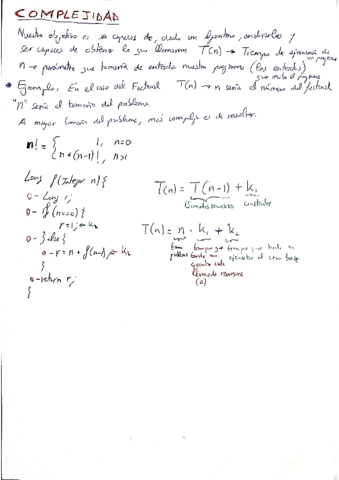 COMPLEJIDAD
Nuestro objetivo es ser capaces de, dado un algoritmo, analizarlo y
ser capaces de obtener lo que llamamos T(n) → Tiempo de ejecución de un programa
n → parámetro que tomaría de entrada nuestro programa (las entradas)
que recibe el programa
Ejemplo: En el caso del Factorial T(n) → n sería el número del factorial
"n" sería el tamaño del problema.
A mayor tamaño del problema, más complejo es de resolver.
n! = { 1, n=0
n*(n-1)!, n>1
Long f(Integer n){
0- Long r;
0- if(n==0){
r=1; ← k2
0- }else{
0- r = n * f(n-1); ← k2
}
0- return r;
}
T(n) = T(n-1) + k1
llamada recursiva constantes
T(n) = n · k1 + k2
tiempo que tiempo que tarda en
problema tarda en ejecutar el caso base
ejecutar cada
llamada recursiva
(0)